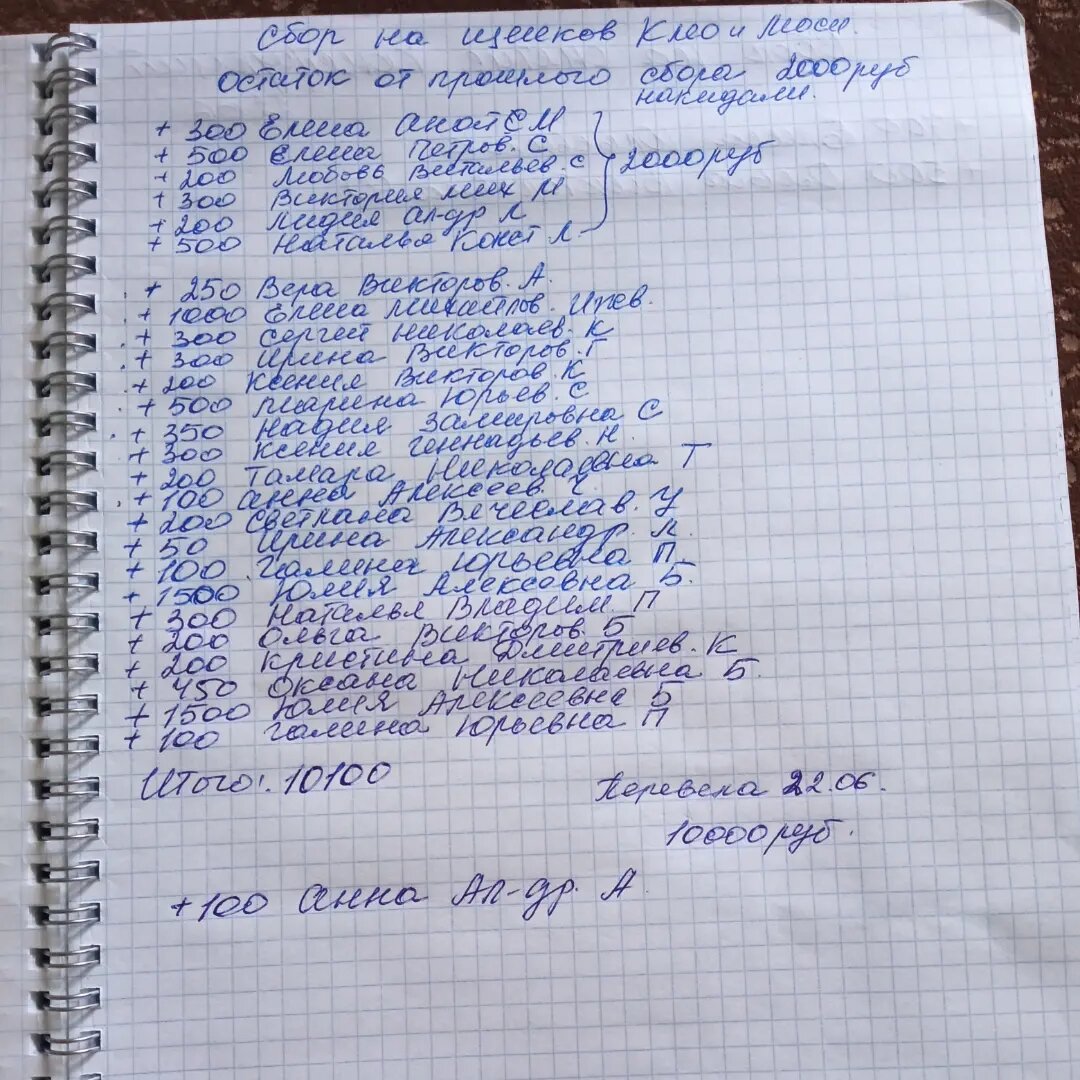 Сбор на щенков Клео и Люси.
Остаток от прошлого сбора 2000руб
накидали.
+ 300 Елена Анат М
+ 500 Елена Петров. С
+ 200 Любовь Витальев. С
+ 300 Виктория Мих М
+ 200 Лидия Ал-др Л
+ 500 Наталья Конст Л.
2000руб
+ 250 Вера Викторов. А.
+ 1000 Елена Михайлов. Ижев.
+ 300 Сергей Николаев. К
+ 300 Ирина Викторов. Г
+ 200 Ксения Викторов. К
+ 500 Марина Юрьев. С
+ 350 Надия Замировна С
+ 300 Ксения Геннадьев. Н.
+ 200 Тамара Николаевна Т
+ 100 Анна Алексеев. Ч.
+ 200 Светлана Вячеслав. У
+ 50 Ирина Александр. Л.
+ 100 Галина Юрьевна П.
+ 1500 Юлия Алексевна Б.
+ 300 Наталья Владим. П
+ 200 Ольга Викторов. Б
+ 200 Кристина Дмитриев. К
+ 450 Оксана Николаевна Б.
+ 1500 Юлия Алексеевна Б
+ 100 Галина Юрьевна П
Итого: 10100
Перевела 22.06.
10000руб.
+100 Анна Ал-др. А.